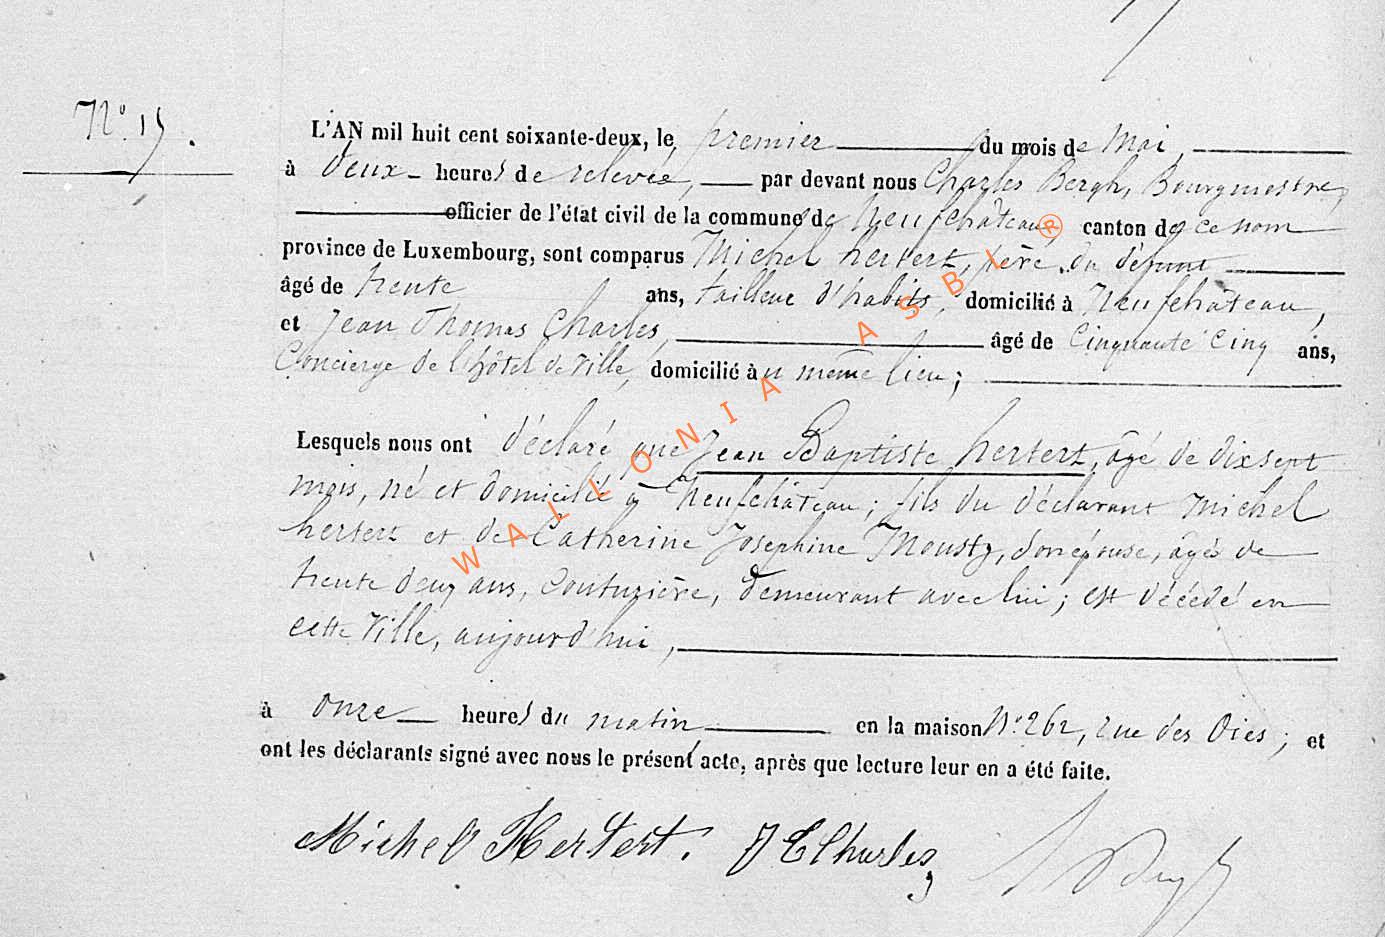 N° 15.
L'AN mil huit cent soixante-deux, le, premier du mois de Mai,
à deux heures de relevée, par devant nous Charles Bergh, Bourgmestre,
officier de l'état civil de la commune de Neufchâteau, canton de ce nom
province de Luxembourg, sont comparus Michel hertert, père du défunt
âgé de trente ans, tailleur d'habits, domicilié à Neufchâteau,
et Jean Thomas Charles, âgé de Cinquante Cinq ans,
Concierge de l'hôtel de Ville, domicilié au même lieu;
Lesquels nous ont déclaré que Jean Baptiste hertert, âgé de dixsept
mois, né et domicilié à Neufchâteau; fils du déclarant Michel
hertert et de Catherine Josephine Mousty, son épouse, âgée de
trente deux ans, Couturière, demeurant avec lui; est décédé en
cette Ville, aujourd'hui,
à onze heures du matin en la maison N° 262, rue des Oies; et
ont les déclarants signé avec nous le présent acte, après que lecture leur en a été faite.
Michel Hertert. J T Charles
WALLONIA ASBL ®